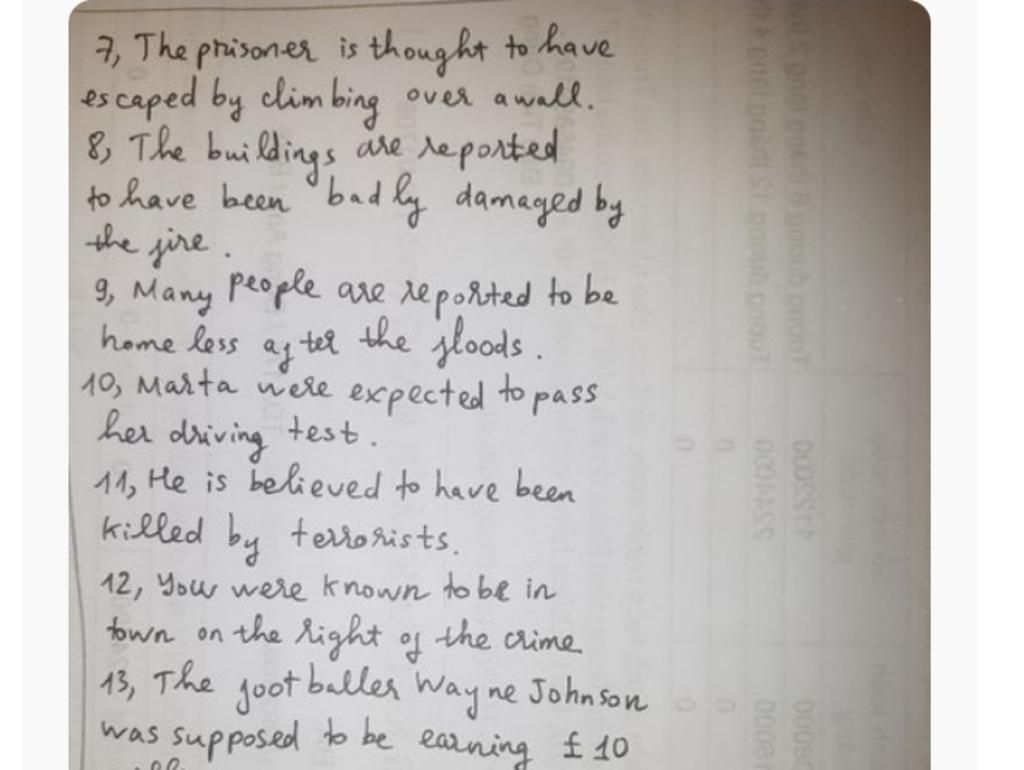 7, The prisoner is thought to have
escaped by climbing over a wall.
8, The buildings are reported
to have been badly damaged by
the fire.
9, Many people are reported to be
homeless after the floods.
10, Marta were expected to pass
her driving test.
11, He is believed to have been
killed by terrorists.
12, You were known to be in
town on the right of the crime
13, The footballer Wayne Johnson
was supposed to be earning £10